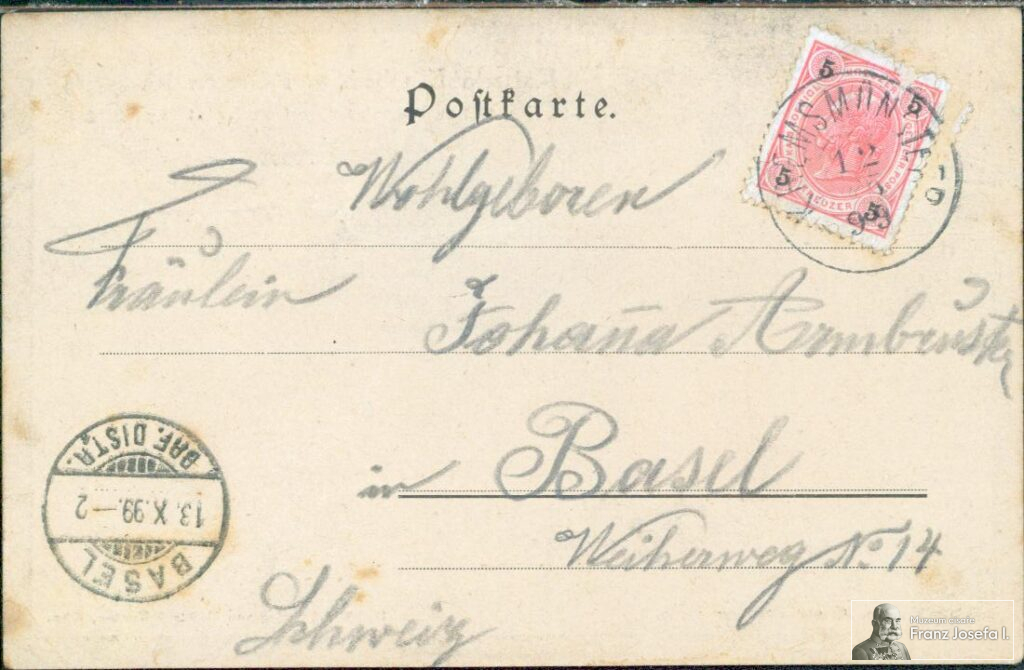 Postkarte.
5 5 5 5
KREUZER
KREMSMÜNSTER
12
99
Wohlgeboren
Fräulein
Johanna Armbruster
in Basel
Weiherweg No 14
Schweiz
BRF. DISTR.
13. X. 99. – 2
BASEL
Muzeum císaře
Franz Josefa I.